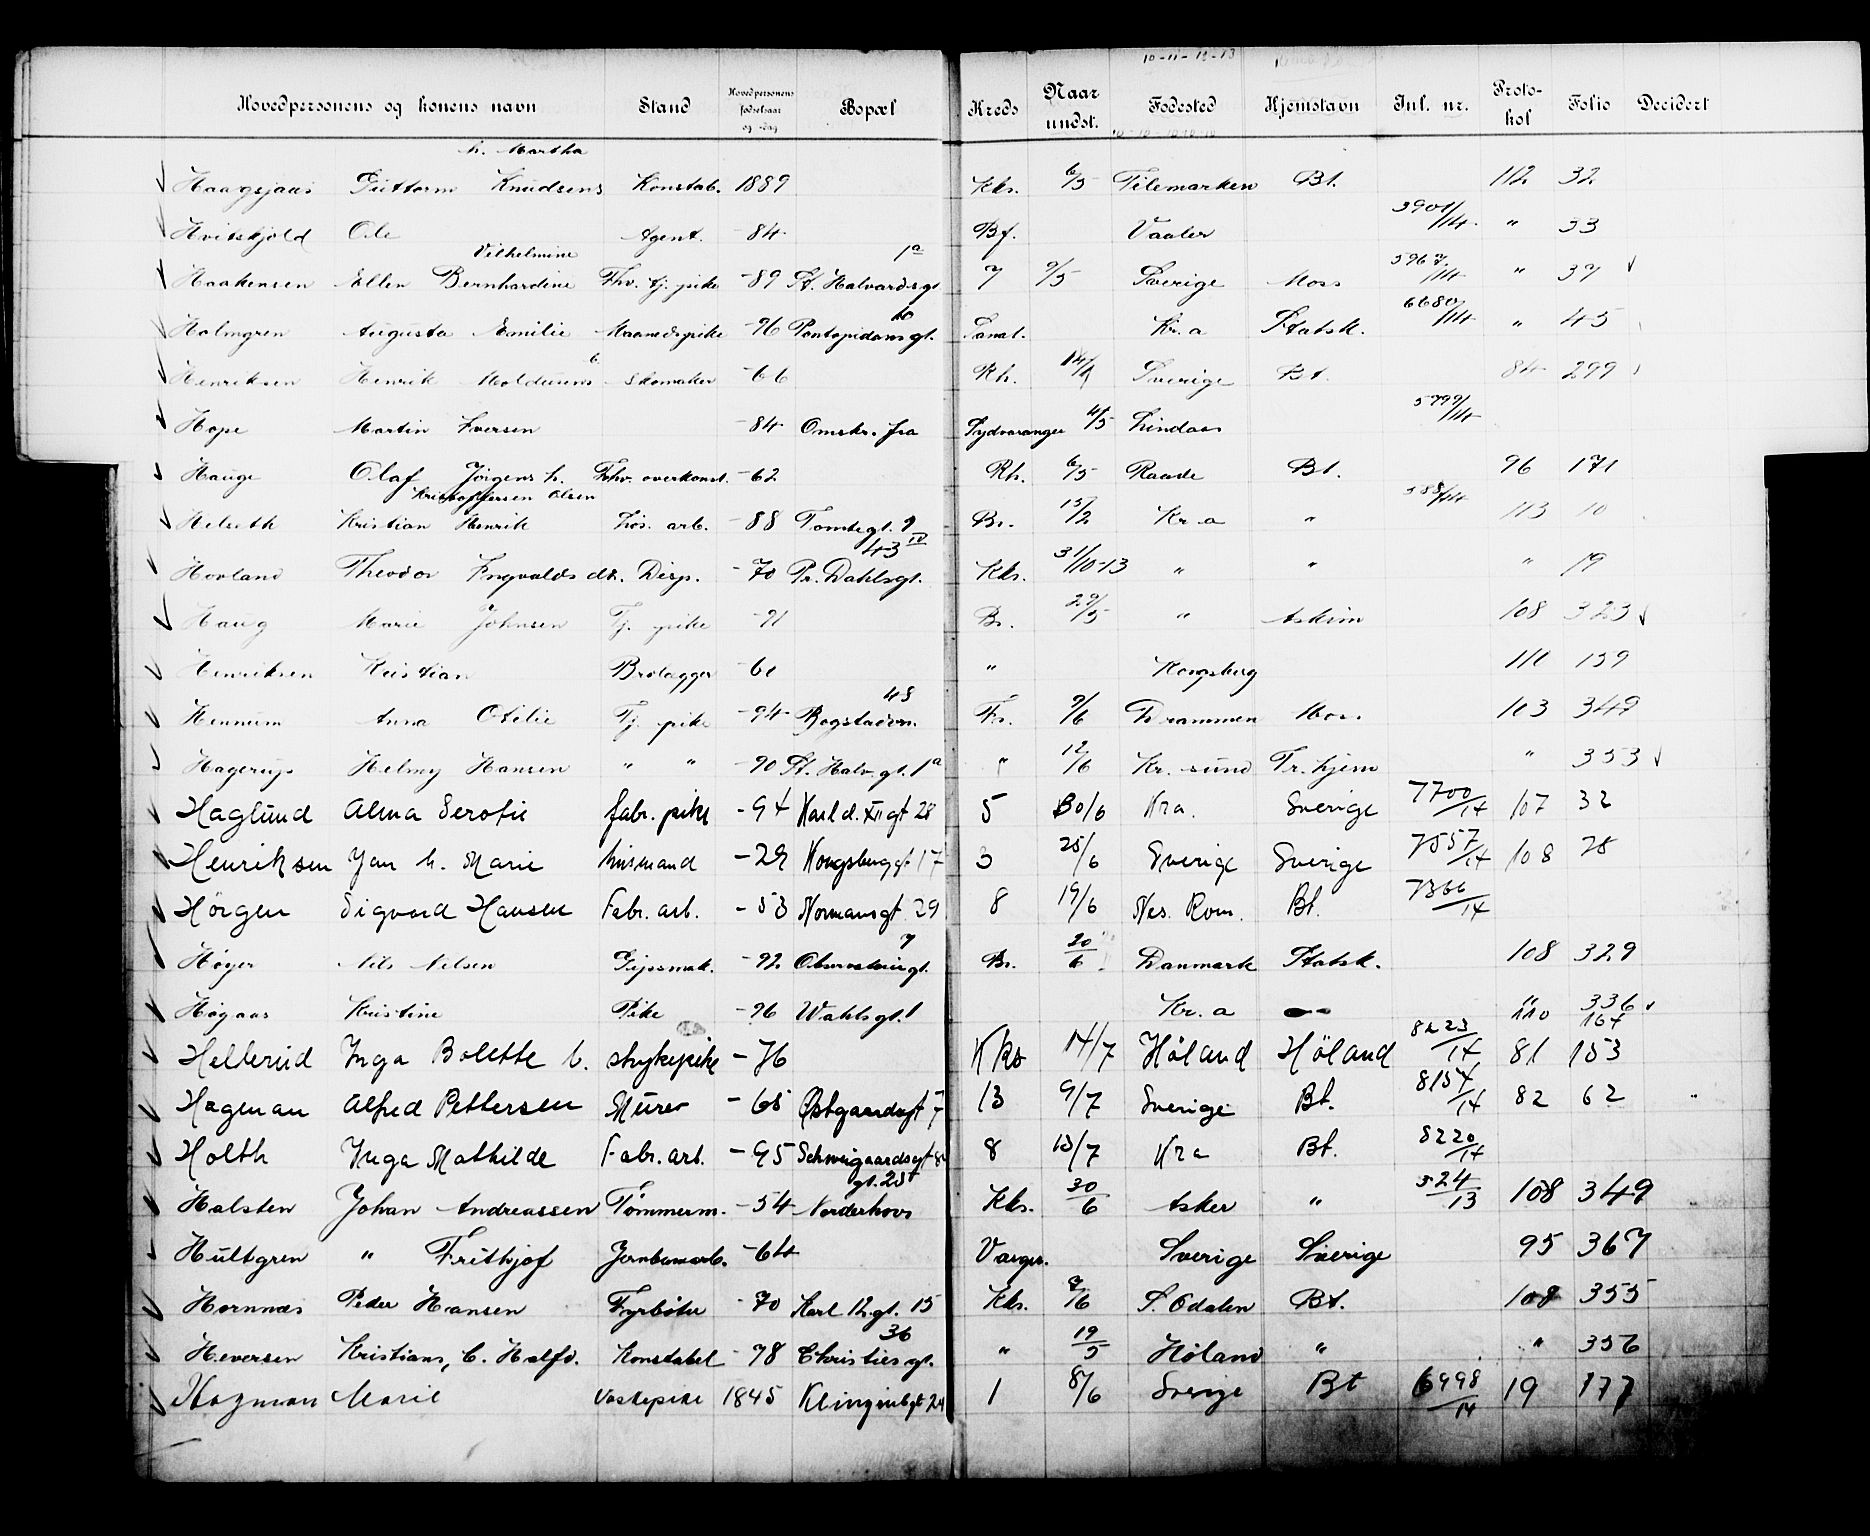 10-11-12-13
Hovedpersonens og konens navn Stand Hovedpersonens fødselsaar og -dag Bopæl Kreds Naar undst. Fødested Hjemstavn Inl. nr. Proto-kol Folio Decidert
h. Martha
Haagsjaas Guttorm Knudsens Konstab. 1889 Kks. 6/5 Tilemarken Bt. 112 32
Hvitskjold Ole Agent. -84 Bf. Vaaler 3901/14 " 33
Vilhelmine 1a
Haakensen Ellen Bernhardine Fhv. tj. pike -89 St. Halvardsgt 7 9/5 Sverige Moss 5967/14 " 37
10
Holmgren Augusta Emilie Maanedspike -96 Pontopidansgt. Sanat. Kr.a Statsk. 6680/14 " 45
b.
Henriksen Henrik Skomaker -66 Rh. 14/9 Sverige Bt. 84 299
Hope Martin Iversen -84 Omskr. fra Sydvaranger 4/5 Lindaas 5799/14
Hauge Olaf Jörgens h. Fhv. overkonst. -62 Rh. 6/5 Raade Bt. 96 171
Kristoffersen Olsen
Helseth Kristian Henrik Løs. arb. -88 Tomtegt. 9 IV Br. 13/2 Kr.a " 588/14 113 10
43
Hovland Theodor Ingvalds dt. Disp. -70 Pr. Dahlsgt. Kks. 31/10-13 " " " 19
Haug Marie Johnsen Tj. pike -91 Br. 29/5 " Askim 108 323
Henriksen Kristian Brolægger -61 " Kongsberg 111 139
48
Hennum Anna Otilie Tj. pike -94 Bogstadvn. Fr. 9/6 Drammen Moss 103 349
Hagerup Helmy Hansen " " -90 St. Halv. gt. 1a " 12/6 Kr. sund Tr. hjem " 353
Haglund Alma Serofie fabr. pike -94 Karl d. XII gt 28 5 30/6 Kra. Sverige 7700/14 107 32
Henriksen Jan h. Marie husmand -29 Kongsberggt 17 3 25/6 Sverige Sverige 7557/14 108 78
Hörgen Sigvard Hansen Fabr. arb. -53 Normansgt 29 8 19/6 Nes. Rom. Bt. 7366/14
7
Høyer Nils Nilsen Gipsmak. -92 Observatoriegt. Br. 20/6 Danmark Statsk. 108 329
Høgaas Kristine Pike -96 Wahlsgt. 1 Kr.a " 336
110 167
Hellerud Inga Bolette b. strykepike -76 Kks 14/7 Høland Höland 8223/14 81 153
Hagman Alfred Pettersen Murer -65 Østgaardsgt 7 13 9/7 Sverige Bt. 8157/14 82 62
Holth Inga Mathilde Fabr. arb. -95 Schweigaardsgt 8 13/7 Kra Bt. 8220/14
gt. 25
Halsten Johan Andreassen Tömmerm. -54 Norderhovs Kks. 30/6 Asker " 524/13 108 349
Hultgren " Frithjof Jernbanearb. -64 Vanger. Sverige Sverige 95 367
Hornnæs Peder Hansen Fyrbøter -70 Karl 12. gt. 15 Kks. 9/6 S. Odalen Bt. 108 355
36
Heversen Kristians, C. Halfd. Konstabel -78 Christies gt. " 19/5 Høland " " 356
Hagman Marie Vaskepike 1845 Klingenbgt 24 1 8/6 Sverige Bt 6998/14 19 177